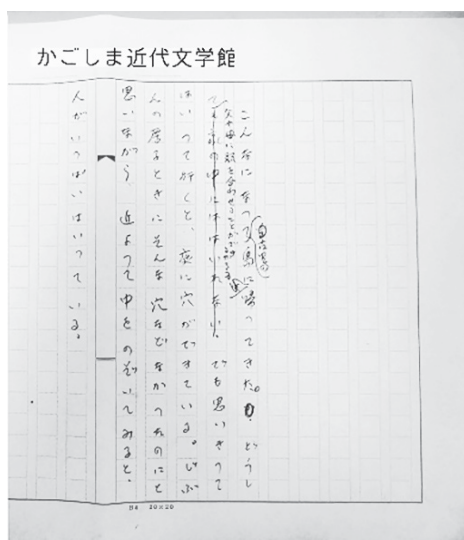 かごしま近代文学館
こんなになつて島に帰ってきた。どうし
ても家の中にははいれない。でも思いきって
はいって行くと、床に穴ができている。じぶ
んの居るときにそんな穴などなかったのにと
思いながら、近よって中をのぞいてみると、
人がいっぱいはいっている。
B4 20×20